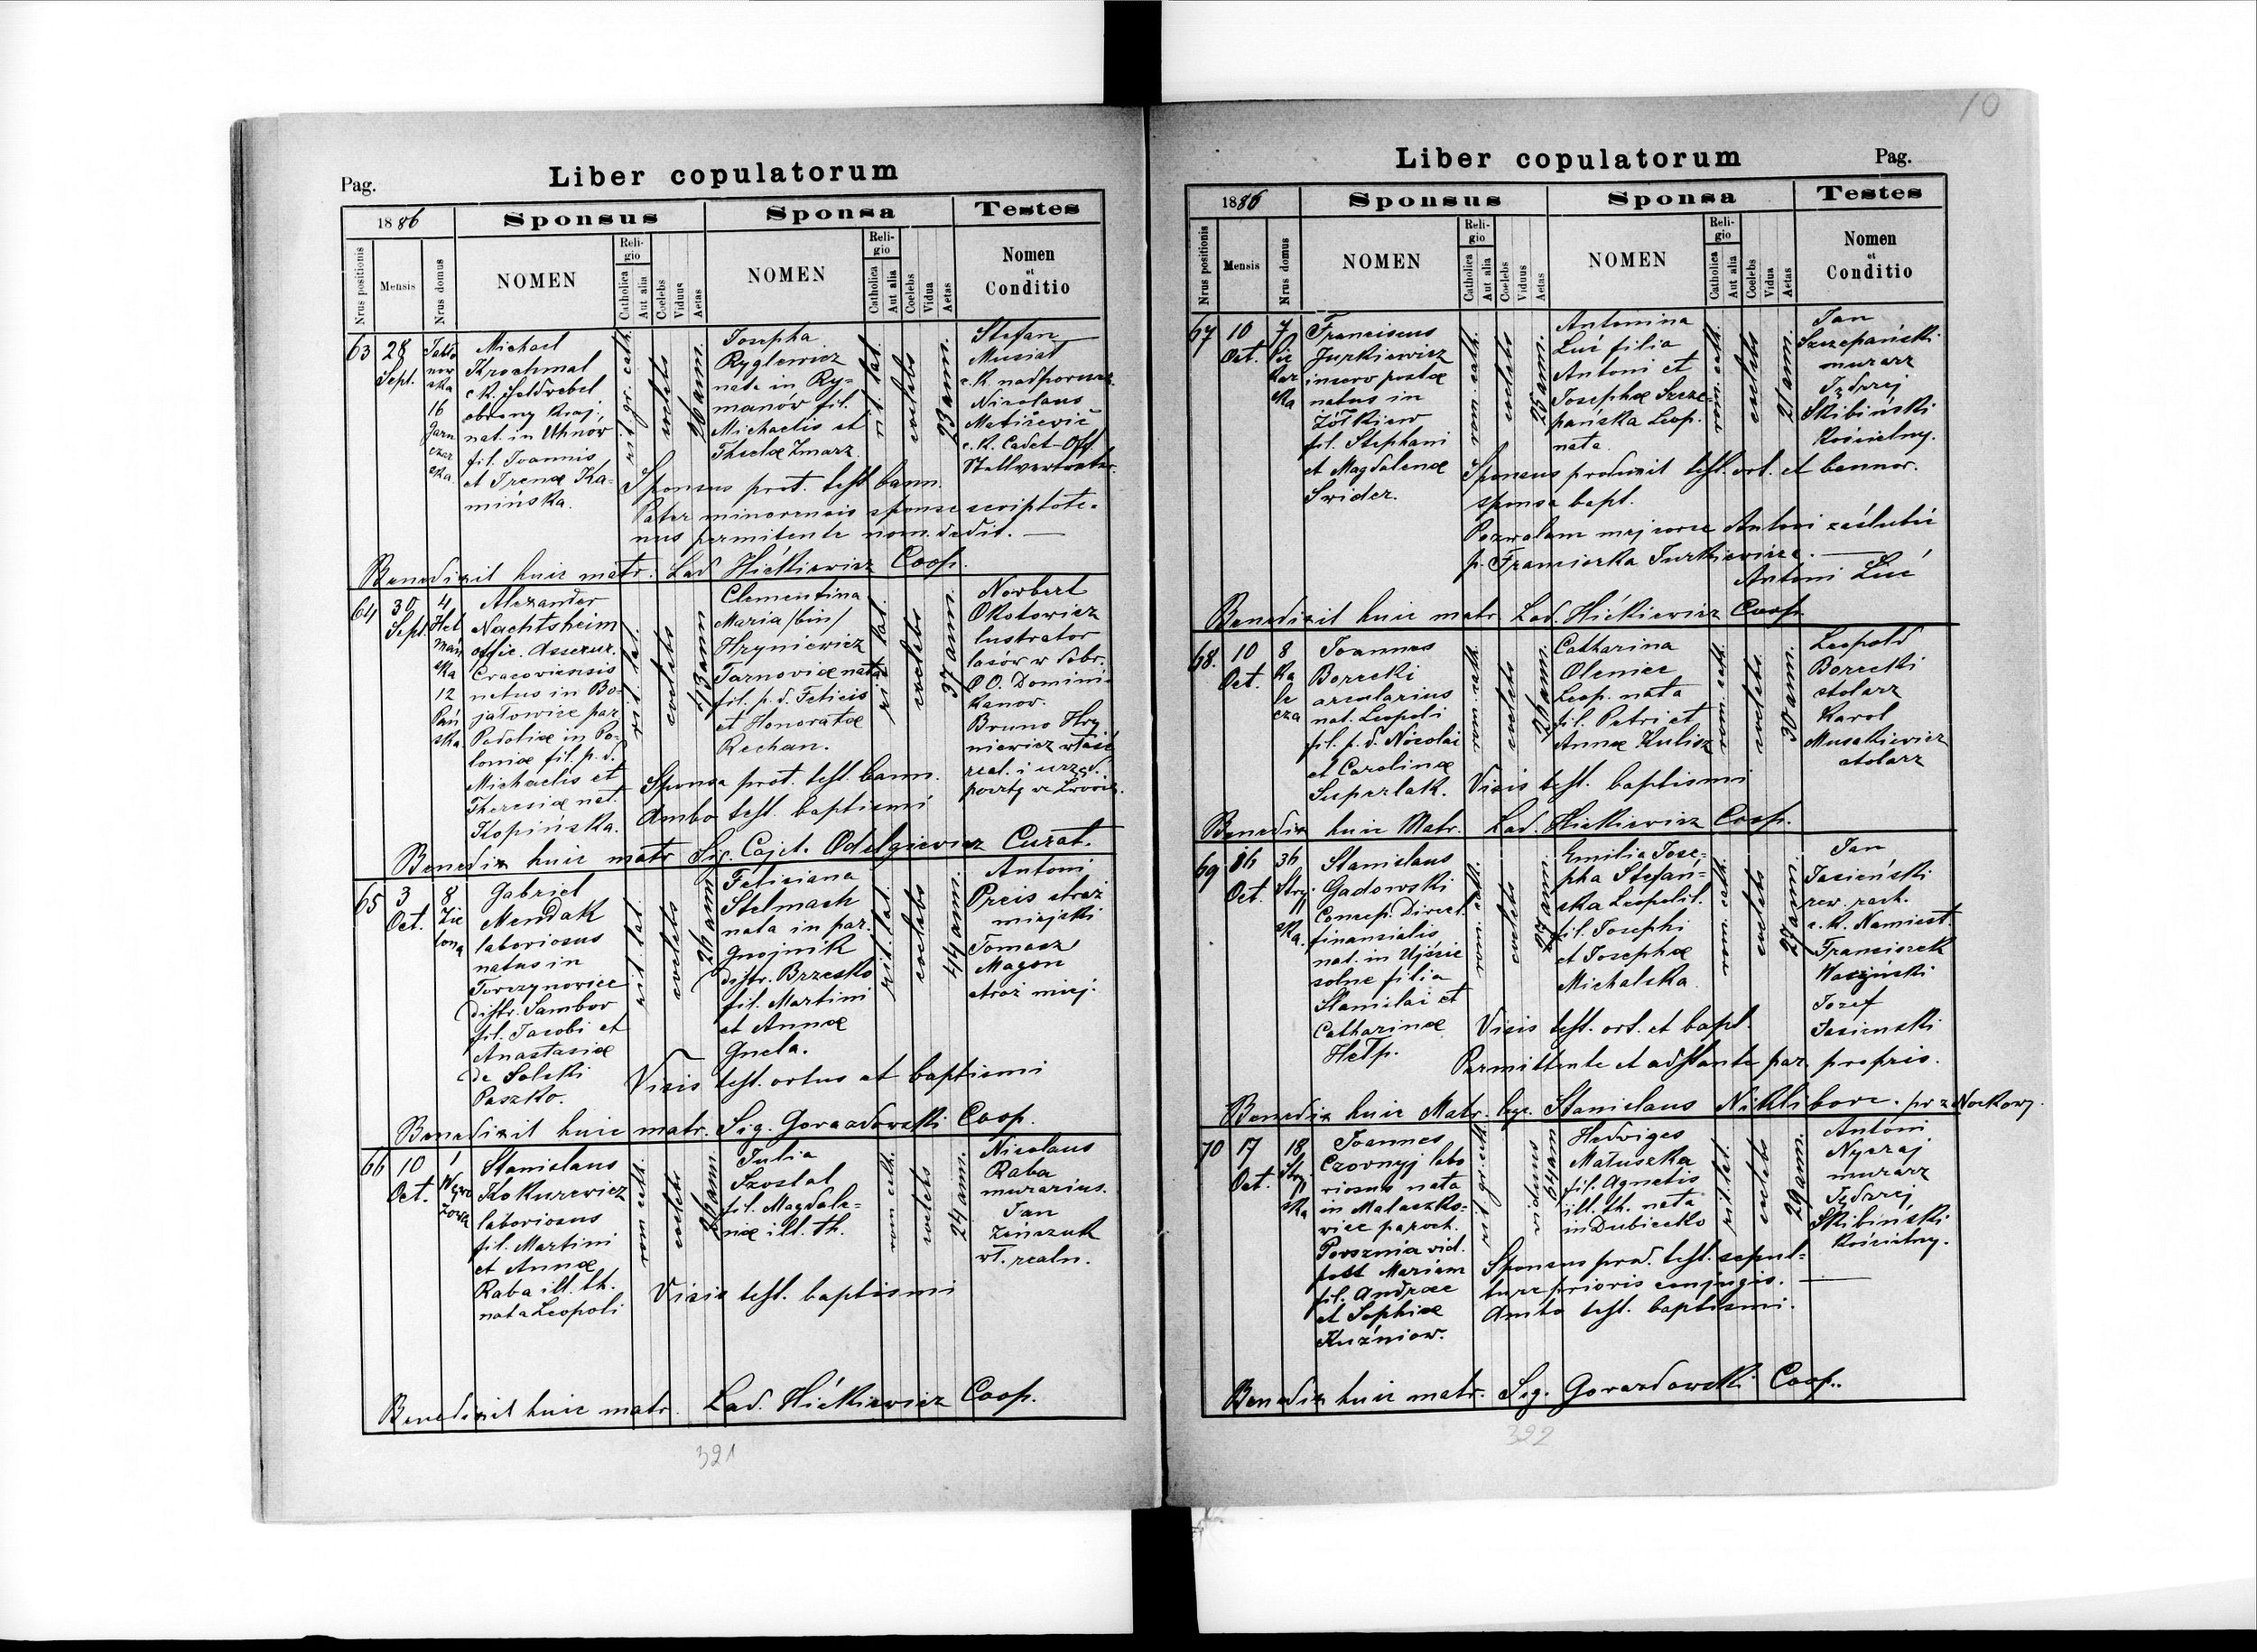 Liber copulatorum
Pag.
1886
Sponsus
Sponsa
Testes
Nrus positionis
Mensis
Nrus domus
NOMEN
Religio
Catholica
Aut alia
Coelebs
Viduus
Aetas
NOMEN
Religio
Catholica
Aut alia
Coelebs
Vidua
Aetas
Nomen
et
Conditio
63
28
Sept.
16
Michael
Krochmal
c. k. Feldwebel
obrony kraj.,
nat. in Uhnów
fil. Joannis
et Irenæ Ka-
mińska.
rit gr. cath.
coelebs
26 ann.
Josepha
Ryglewicz
nata in Ry-
manów fil.
Michaelis et
Theclæ Zmarz.
rit. lat.
coelebs
23 ann.
Stefan
Musiat
c. k. nadporucz.
Nicolaus
c. k. Cadet-Off
Stellvertreter.
Sponsus prot. test bann.
Pater minorennis sponse scriptote-
nus permitente nom. dedit.
Benedixit huic matr. Lad Hićkiewicz Coop.
64
30
Sept.
4
Het
mań
ska
12
Pań
ska
Alexander
Nachtsheim
offic. Assekur.
Cracoviensis
natus in Bo-
jatowice par
Podoliæ in Po-
loniæ fil. p. d.
Michaelis et
Theresiæ nat.
Kopińska.
rit. lat.
coelebs
43 ann
Clementina
Maria /bin/
Hryniewicz
Tarnoviæ nata
fil. p. d. Felicis
et Honoratæ
Rechan.
rit. lat.
coelebs
37 ann.
Norbert
Okotowicz
lustrator
lasów w dobr.
O. O. Domini-
kanow.
Bruno Hry
niewicz właść
real. i urzęd.
poczty we Lwowie.
Sponsa prot. test. bann.
Ambo test. baptismi
Benedix huic matr Sig. Cajet. Odelgiewicz Curat.
65
3
Oct.
8
Zie
lona
Gabriel
Mendak
laboriosus
natus in
Torczynowice
distr. Sambor
fil. Jacobi et
Anastasiæ
de Solski
Paszko.
rit. lat.
coelebs
26 ann
Feliciana
Stelmach
nata in par.
Gnojnik
distr. Brzesko
fil. Martini
et Annæ
Gnela.
rit. lat.
coelebs
44 ann.
Antoni
Preis straż
miejski
Tomasz
Magon
stroż miej.
Visis test. ortus et baptismi
Benedixit huic matr. Sig. Gorazdowski Coop.
66
10
Oct.
1
Stanislaus
Kokurewicz
laboriosus
fil. Martini
et Annæ
Raba ill. th.
nata Leopoli
rom cath.
coelebs
26 ann.
Julia
Szostal
fil. Magdale-
næ ill. th.
rom cath.
coelebs
24 ann.
Nicolaus
Raba
murarius.
Jan
Zińczuk
wł. realn.
Visis test. baptismi
Benedixit huic matr. Lad. Hićkiewicz Coop.
321
10
Liber copulatorum
Pag.
1886
Sponsus
Sponsa
Testes
Nrus positionis
Mensis
Nrus domus
NOMEN
Religio
Catholica
Aut alia
Coelebs
Viduus
Aetas
NOMEN
Religio
Catholica
Aut alia
Coelebs
Vidua
Aetas
Nomen
et
Conditio
67
10
Oct.
7
Pie
kar
ska
Franciscus
Jurkiewicz
inserv postæ
natus in
Żółkiew
fil. Stephani
et Magdalenæ
Swider.
rom. cath.
coelebs
25 ann.
Antonina
Luć filia
Antoni et
Josephæ Szcze
pańska Leop.
nata
rom. cath.
coelebs
21 ann.
Jan
Szczepański
murarz
Jędrzej
Skibiński
Kościelny.
Sponsus produxit test. ort. et bannor.
sponsa bapt.
Pozwalam mej corce Antoni zaślubić
p. Franciszka Jurkiewicza.
Antoni Luć
Benedixit huic matr. Lad. Hićkiewicz Coop.
68.
10
Oct.
8
Ka
le
cza
Joannes
Borecki
arcularius
nat. Leopoli
fil. p. d. Nicolai
et Carolinæ
Superlak.
rom. cath.
coelebs
26 ann.
Catharina
Oleniec
Leop. nata
fil. Petri et
Annæ Kulisz
rom. cath.
coelebs
30 ann.
Leopold
Borecki
stolarz
Karol
Musakiewicz
stolarz
Visis test. baptismi
Benedix huic Matr. Lad. Hićkiewicz Coop.
69
16
Oct.
36
Stry
ska.
Stanislaus
Gadowski
Concep. Direct.
finansialis
nat. in Ujście
solne filia
Stanislai et
Catharinæ
Help.
rom. cath.
coelebs
27 ann.
Emilia Jose-
pha Stefań-
ska Leopolit.
fil. Josephi
et Josephæ
Michalska.
rom. cath.
coelebs
27 ann.
Jan
Jasieński
rew. rach.
c. k. Namiest.
Franciszek
Józef
Jasienski
Visis test. ort. et bapt.
Permittente et adstante par. proprio.
Benedix huic Matr. Stanislaus Niklibore. pr z Nockowy
70
17
Oct.
18
Stry
ska
Joannes
Czornyj labo
riosus nata
in Malaszko-
wice paroch.
Porsznia vid.
post Mariam
fil. Andreæ
et Sophiæ
Kuźniow.
rit gr. cath
viduus
64 ann
Hedviges
Matuszka
fil. Agnetis
ill. th. nata
in Dubiecko
rit lat.
coelebs
29 ann.
Antoni
Nyczaj
murarz
Jędrzej
Skibiński
Kościelny.
Sponsus prod. test. sepul-
ture prioris conjugis.
Ambo test. baptismi.
Benedix huic matr. Sig. Gorazdowski Coop.
322